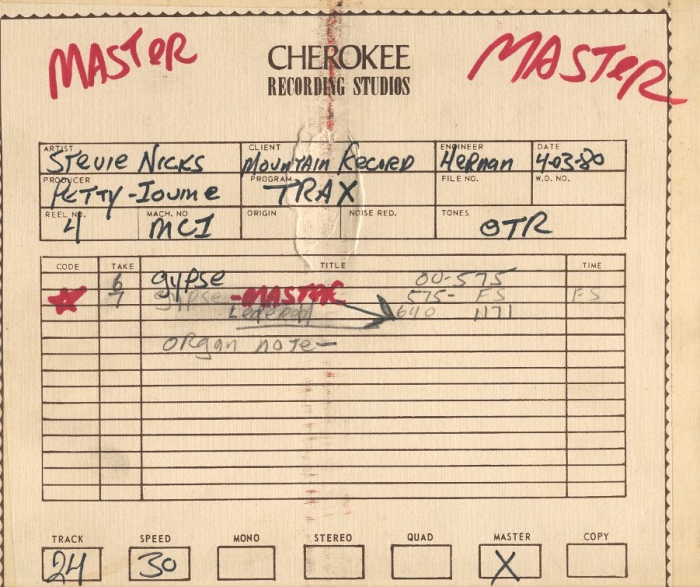 MASTER
MASTER
CHEROKEE
RECORDING STUDIOS
ARTIST CLIENT ENGINEER DATE
Stevie Nicks Mountain Record Herman 4-03-80
PRODUCER PROGRAM FILE NO. W.O. NO.
Petty-Iovine TRAX
REEL NO. MACH. NO ORIGIN NOISE RED. TONES
4 MCI OTR
CODE TAKE TITLE TIME
6 gypse 00-575
7 gypse -MASTER 575- FS FS
Ledered 640 1171
organ note-
TRACK SPEED MONO STEREO QUAD MASTER COPY
24 30 X